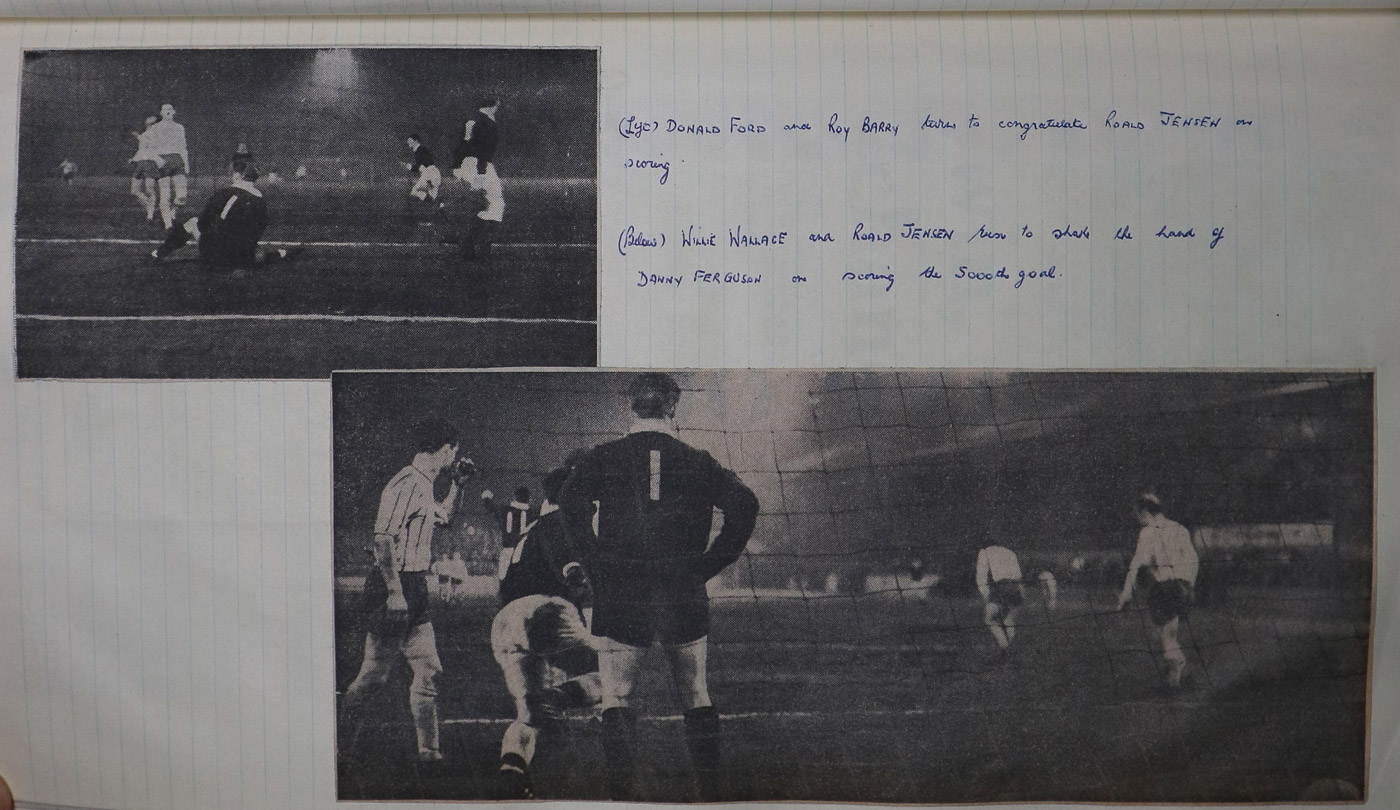 (Lye) DONALD FORD and Roy BARRY turns to congratulate ROALD JENSEN on
scoring.
(Below) WILLIE WALLACE and ROALD JENSEN run to shake the hand of
DANNY FERGUSON on scoring the 5000th goal.
1
1
11